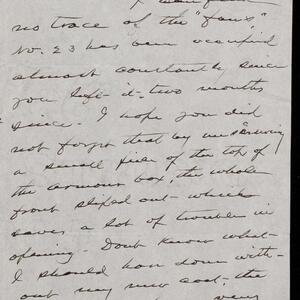 no trace of the "fans,"
No. 23 has been occupied
almost constantly since
you left it two months
since. I hope you did
not forget that by
a small piece of the top of
the armour box, the whole
front slipped out which
saves a lot of trouble in
opening. Dont know what
I should have done with-
out my new coat, the
very